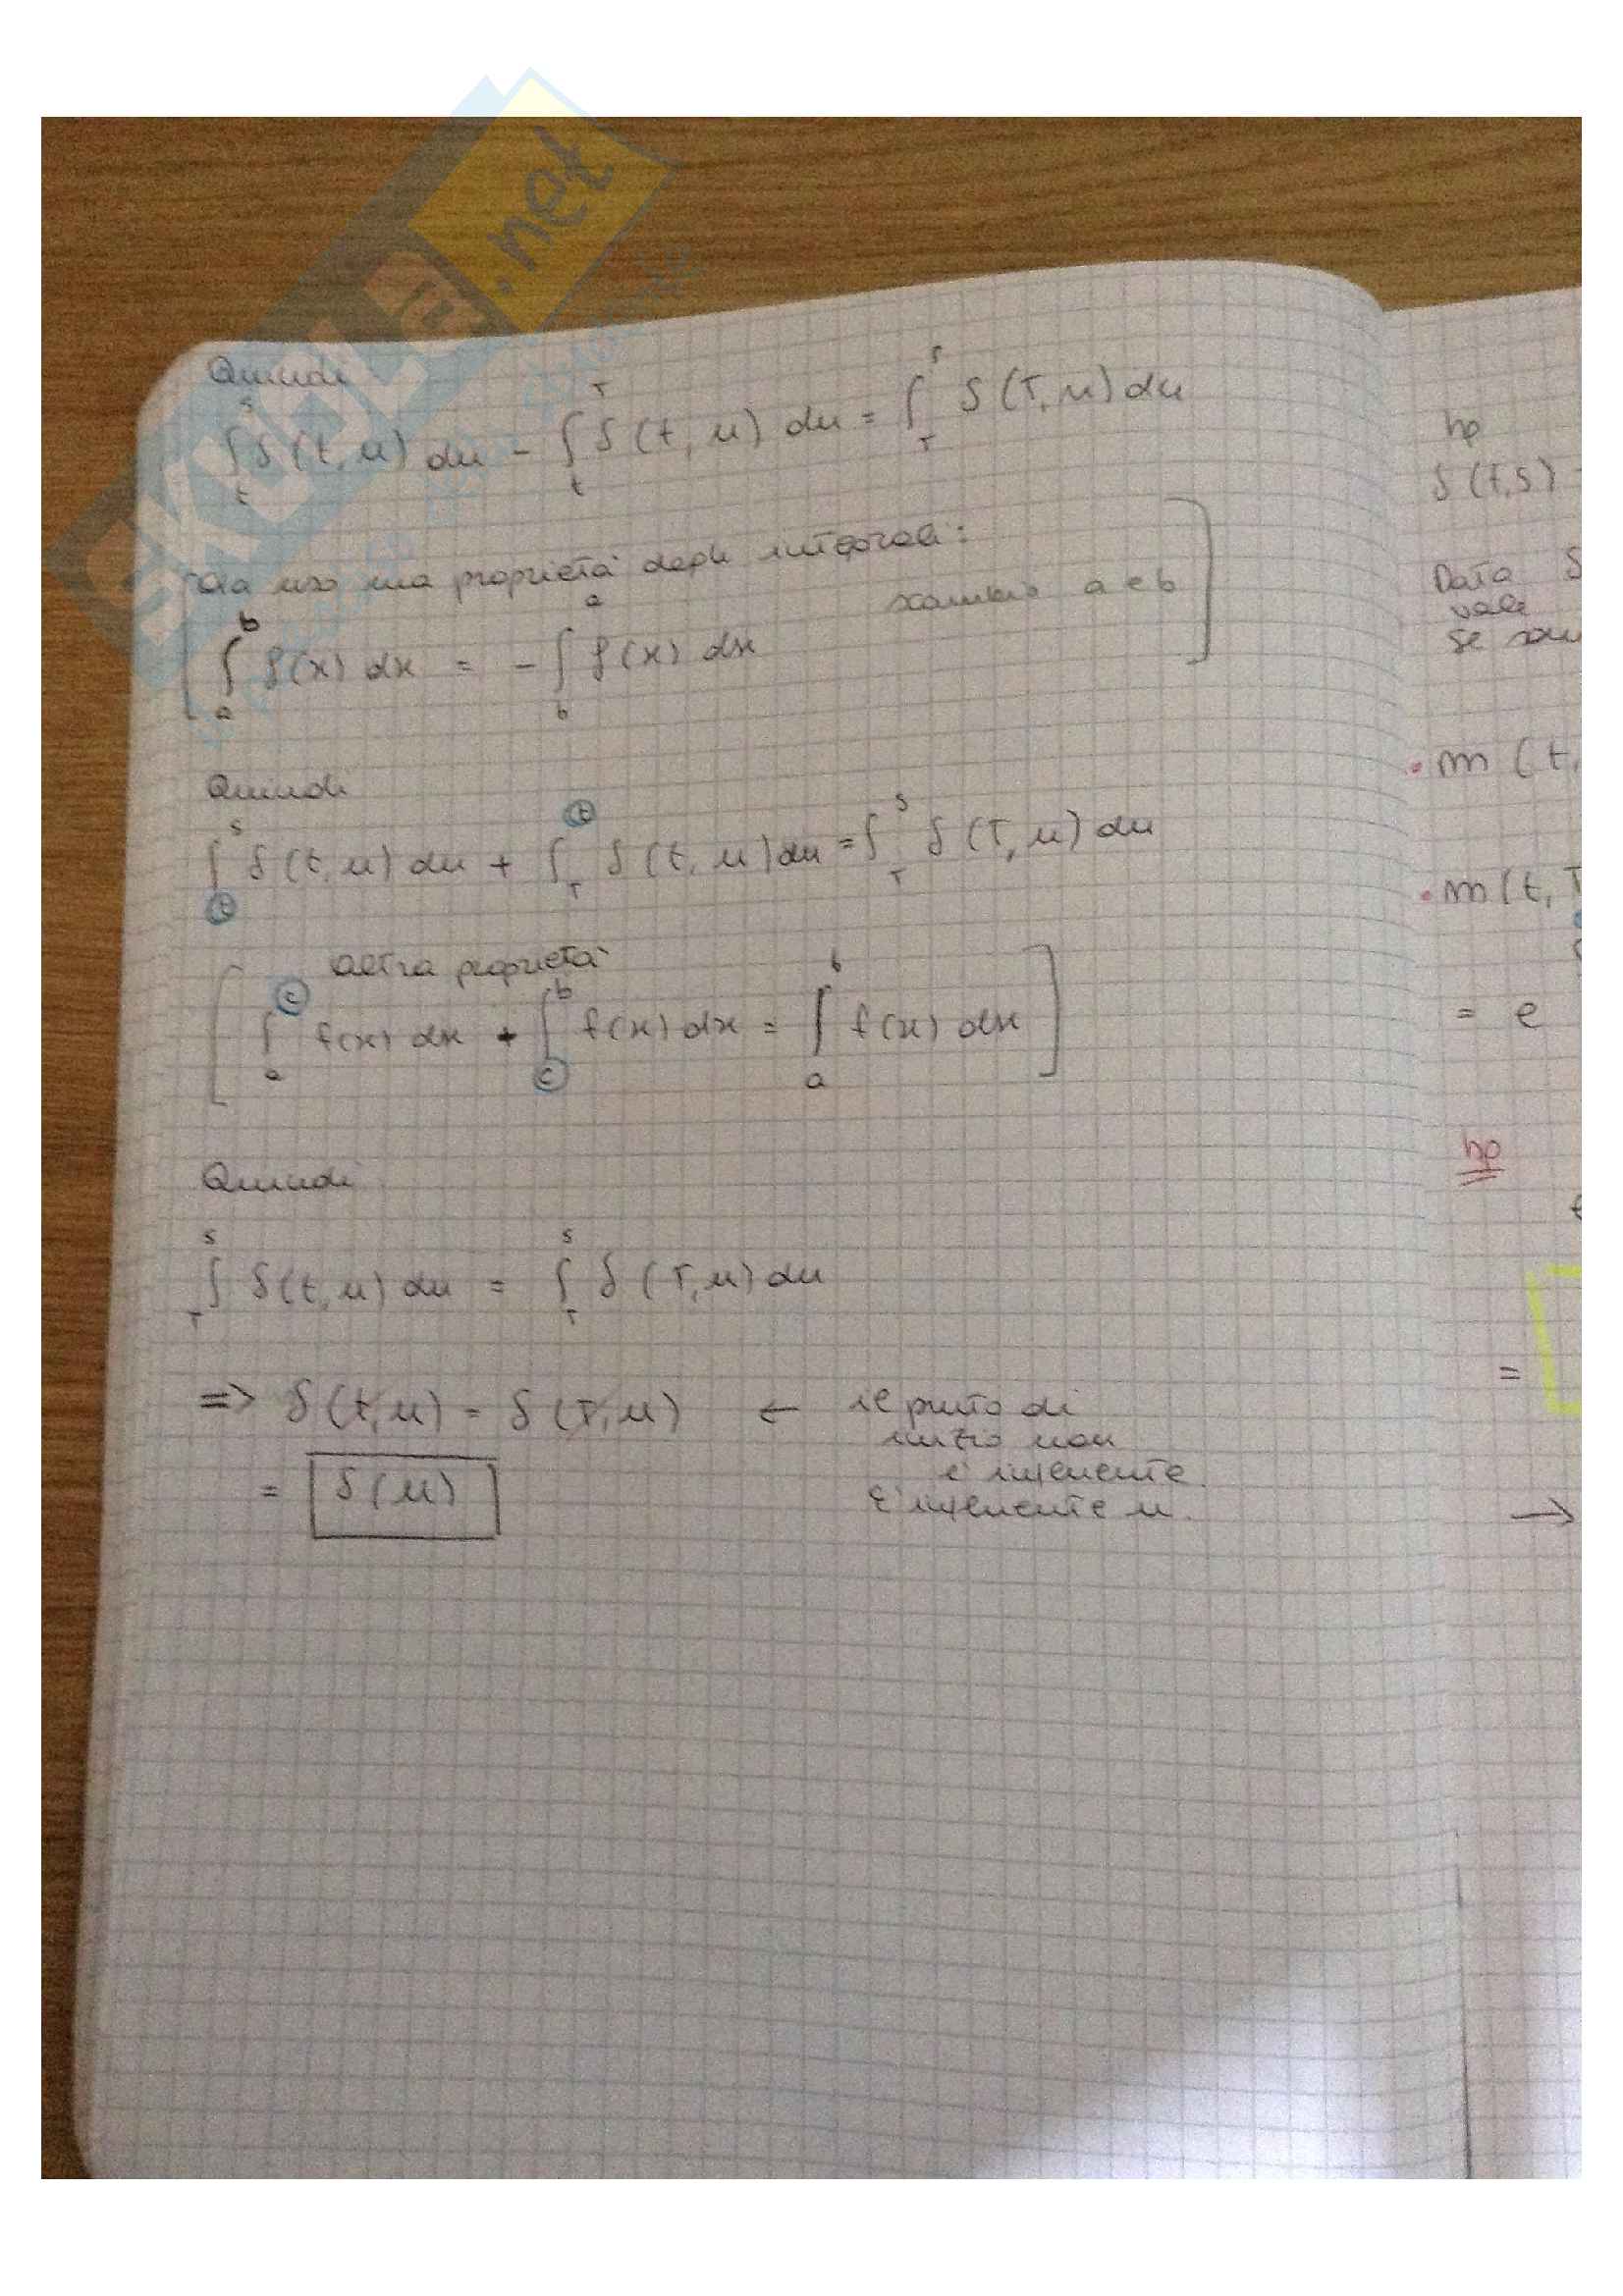 Quindi
∫_t^s δ(t,u) du - ∫_t^T δ(t,u) du = ∫_T^s δ(T,u) du
[Ora uso una proprietà degli integrali:
∫_a^b f(x) dx = -∫_b^a f(x) dx scambio a e b]
Quindi
∫_t^s δ(t,u) du + ∫_T^t δ(t,u) du = ∫_T^s δ(T,u) du
[altra proprietà
∫_a^c f(x) dx + ∫_c^b f(x) dx = ∫_a^b f(x) dx]
Quindi
∫_T^s δ(t,u) du = ∫_T^s δ(T,u) du
=> δ(t,u) = δ(T,u) ← il punto di
inizio non
è influente.
= δ(u) È influente u.
hp
δ(t,s)
Data δ
vale
se
• m(t,
• m(t,T
= e
hp
=
→
.net